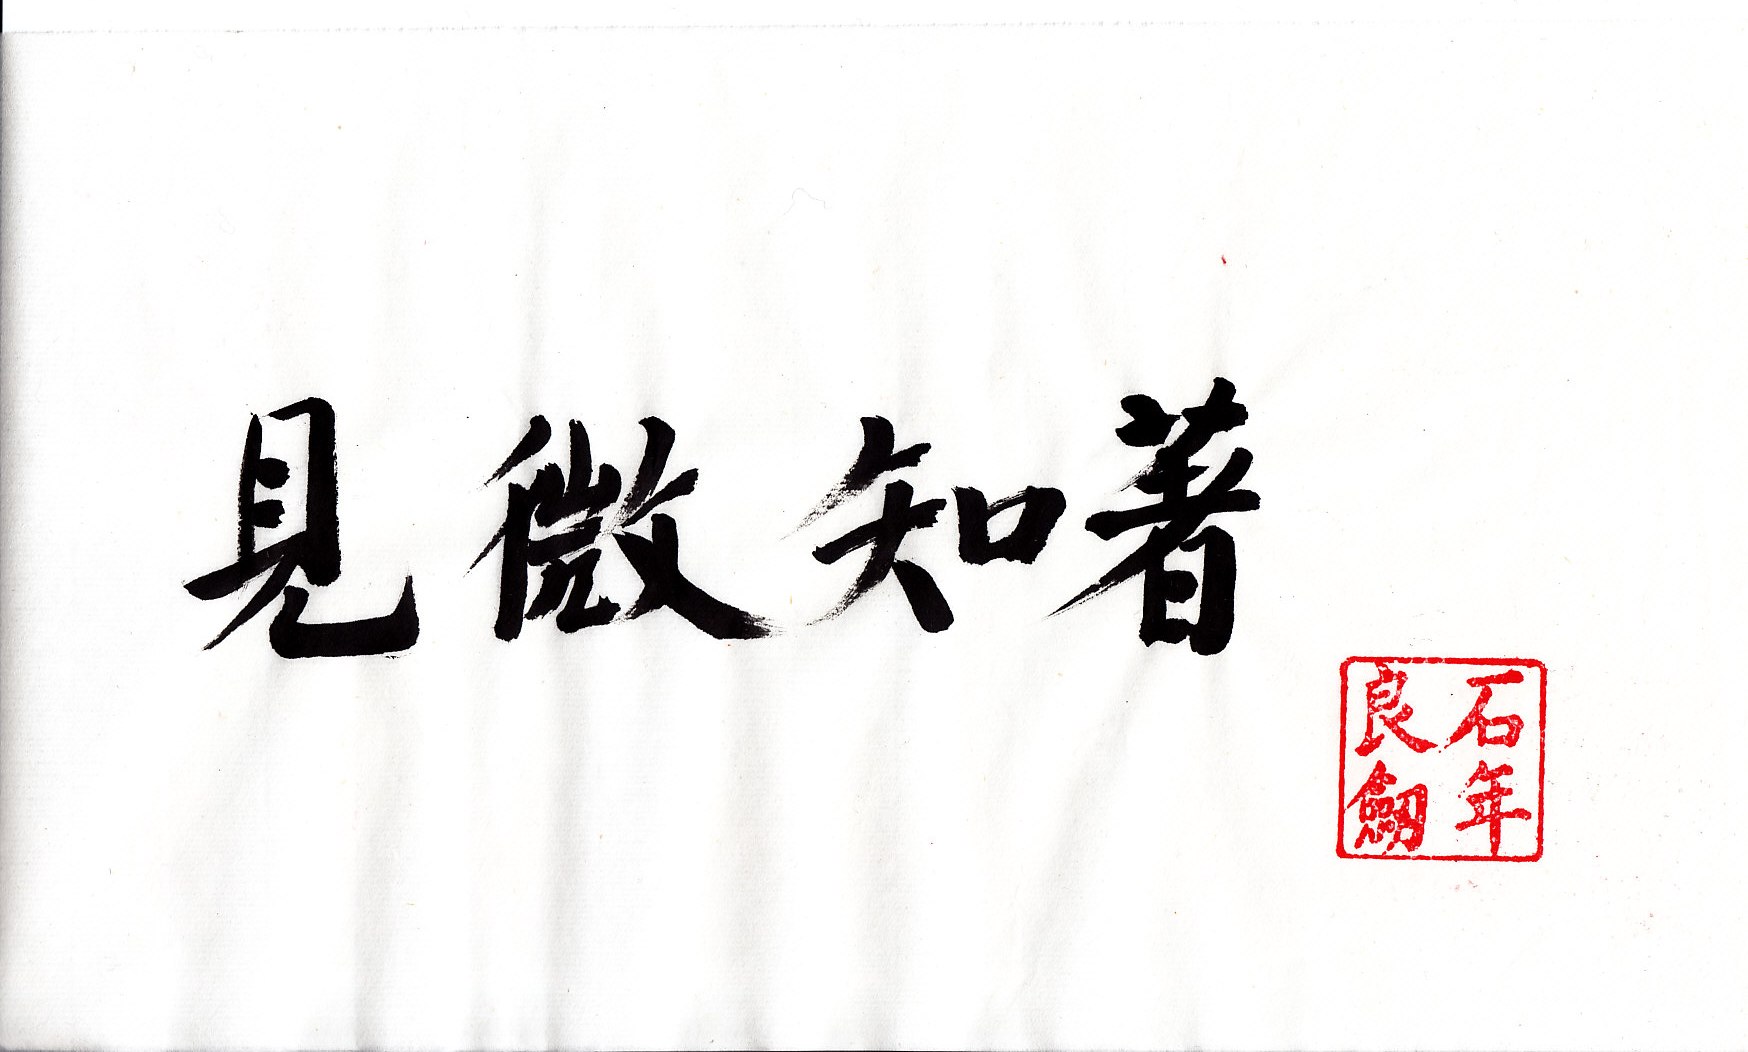 見微知著
石年
良劒